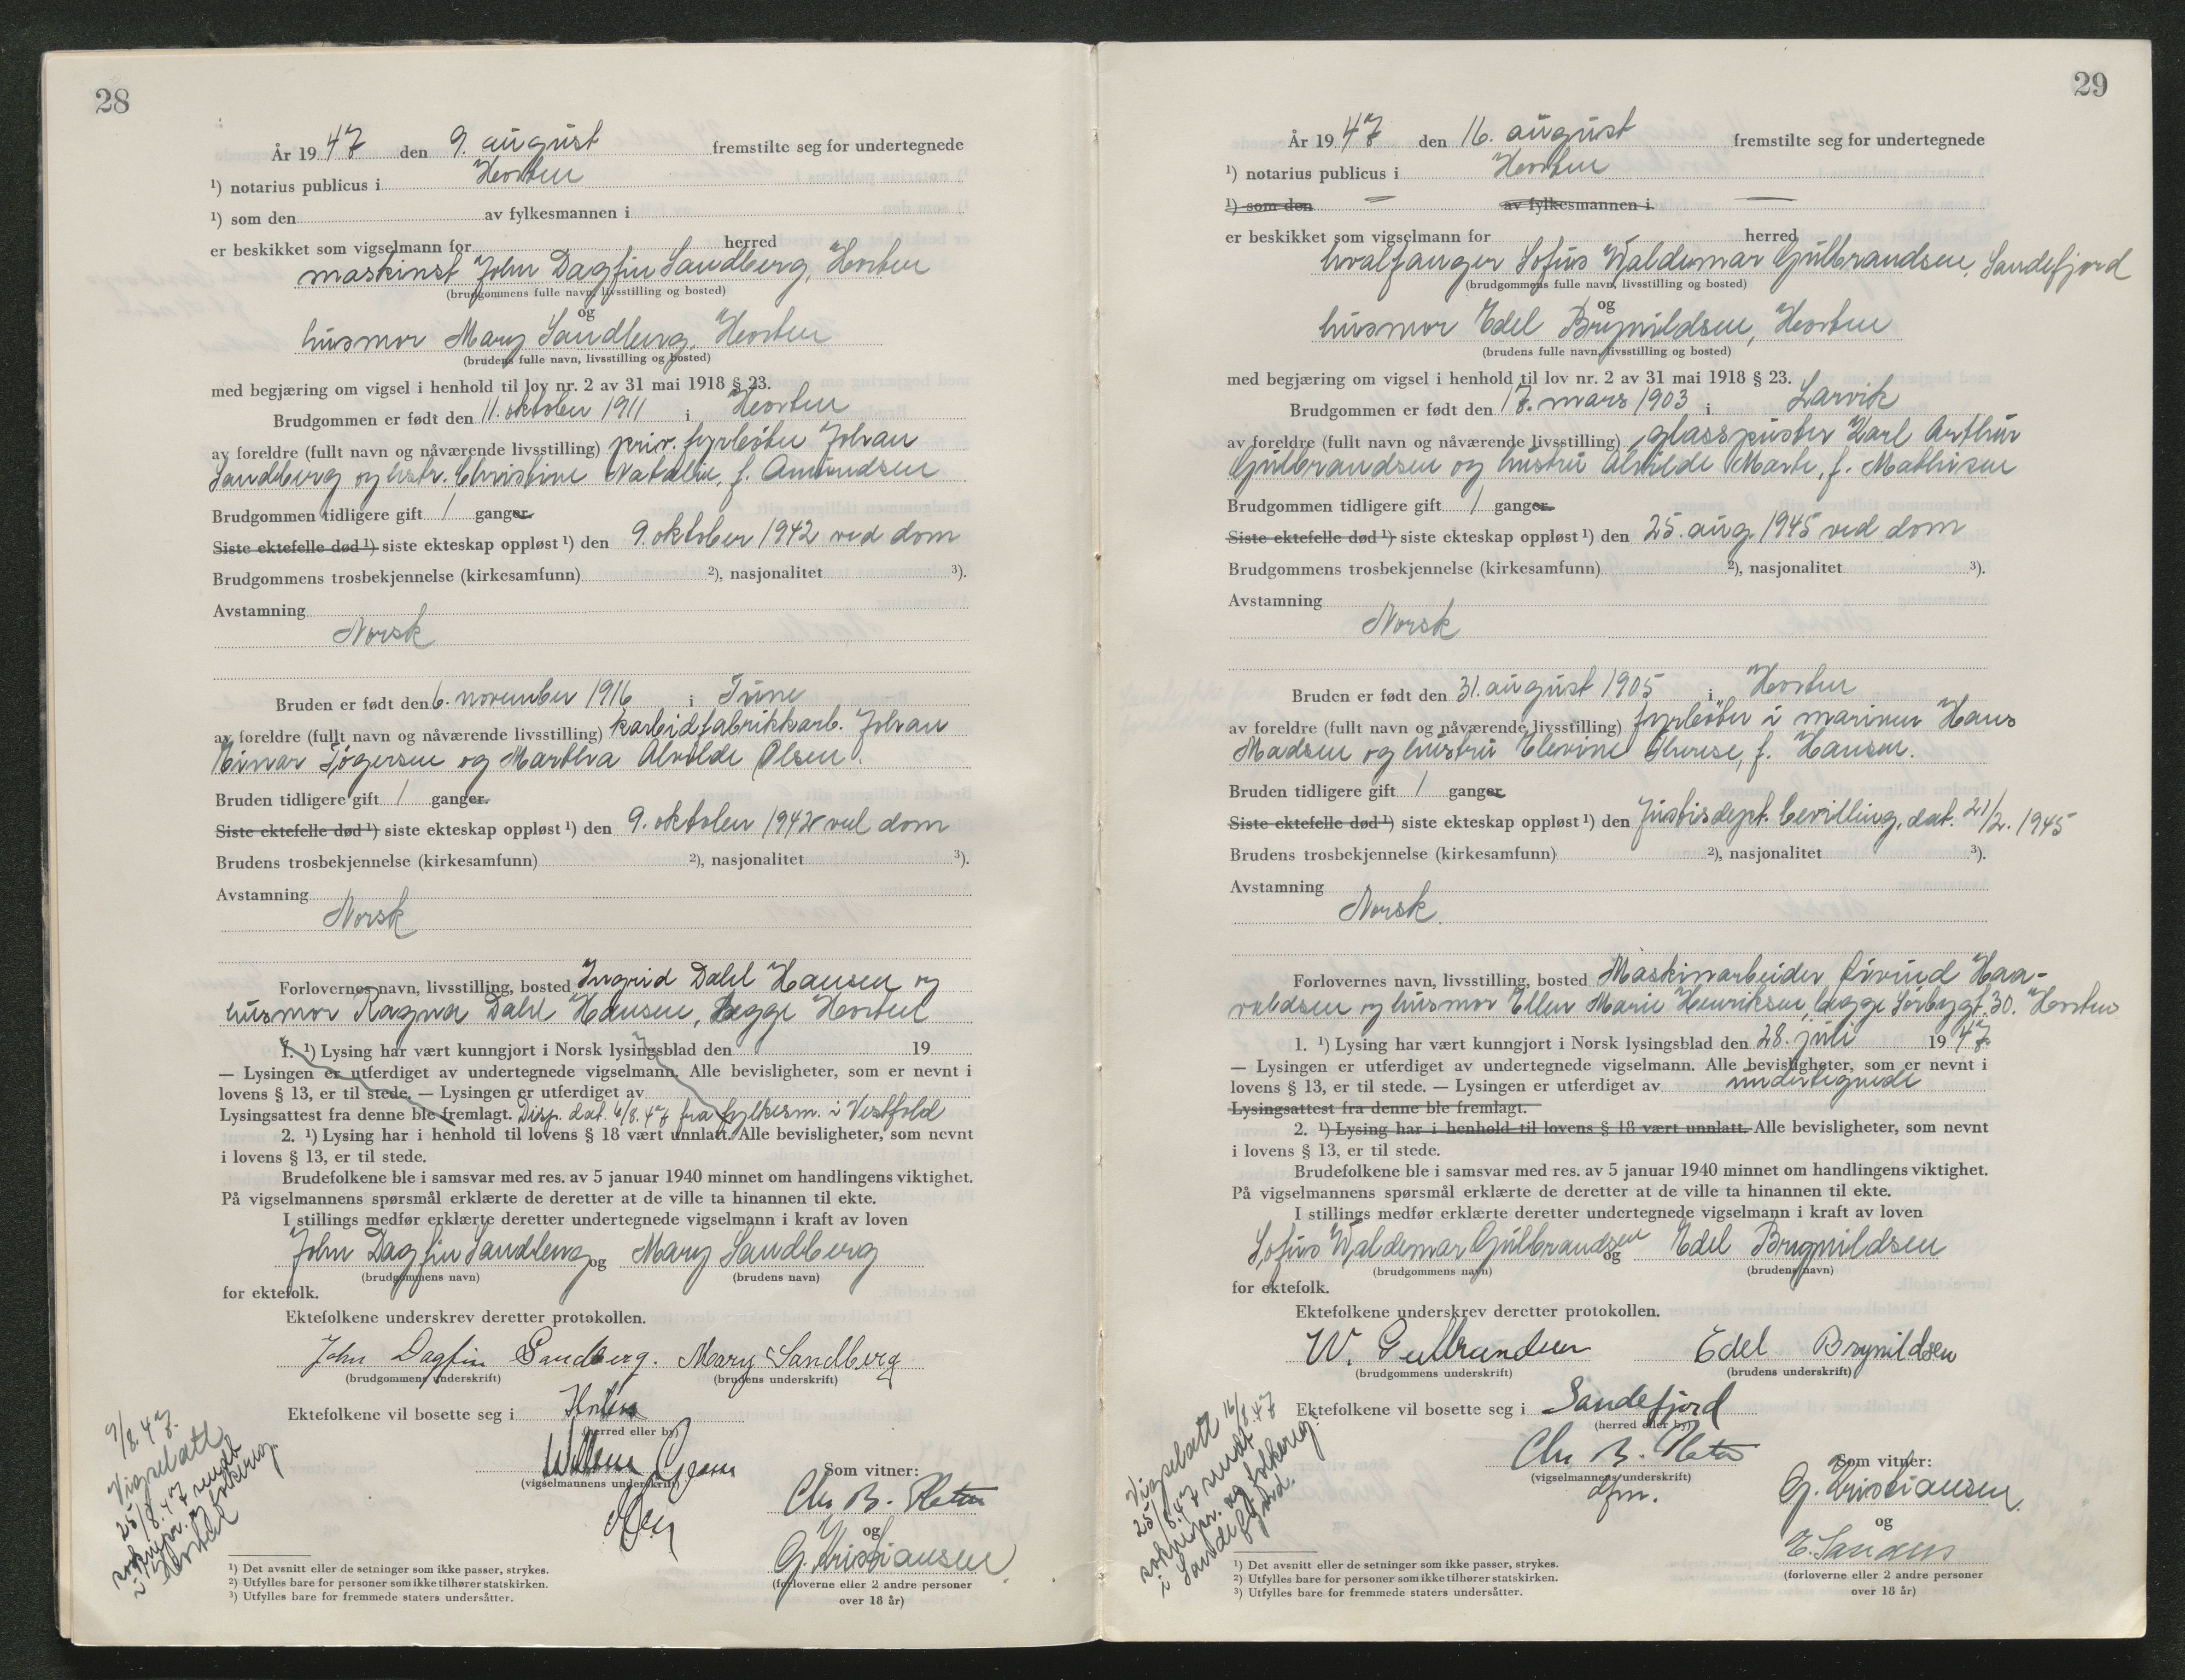 28
År 1947 den 9. august fremstilte seg for undertegnede
¹) notarius publicus i Horten
¹) som den av fylkesmannen i
er beskikket som vigselmann for herred
maskinst John Dagfin Sandberg, Horten
(brudgommens fulle navn, livsstilling og bosted)
og
husmor Mary Sandberg, Horten
(brudens fulle navn, livsstilling og bosted)
med begjæring om vigsel i henhold til lov nr. 2 av 31 mai 1918 § 23.
Brudgommen er født den 11. oktober 1911 i Horten
av foreldre (fullt navn og nåværende livsstilling) priv. fyrbøter Johan
Sandberg og hstr. Christine Natalie, f. Amundsen
Brudgommen tidligere gift 1 ganger.
Siste ektefelle død ¹) siste ekteskap oppløst ¹) den 9. oktober 1942 ved dom
Brudgommens trosbekjennelse (kirkesamfunn) ²), nasjonalitet ³).
Avstamning
Norsk
Bruden er født den 6. november 1916 i Tune
av foreldre (fullt navn og nåværende livsstilling) karbidfabrikkarb. Johan
Tøgersen og Martha Alvilde Olsen.
Bruden tidligere gift 1 ganger.
Siste ektefelle død ¹) siste ekteskap oppløst ¹) den 9. oktober 1942 ved dom
Brudens trosbekjennelse (kirkesamfunn) ²), nasjonalitet ³).
Avstamning
Norsk
Forlovernes navn, livsstilling, bosted Ingrid Dahl Hansen og
husmor Ragna Dahl Hansen, begge Horten
1. ¹) Lysing har vært kunngjort i Norsk lysingsblad den 19
— Lysingen er utferdiget av undertegnede vigselmann. Alle bevisligheter, som er nevnt i
lovens § 13, er til stede. — Lysingen er utferdiget av
Lysingsattest fra denne ble fremlagt. Disp. dat. 6/8.47 fra fylkesm. i Vestfold
2. ¹) Lysing har i henhold til lovens § 18 vært unnlatt. Alle bevisligheter, som nevnt
i lovens § 13, er til stede.
Brudefolkene ble i samsvar med res. av 5 januar 1940 minnet om handlingens viktighet.
På vigselmannens spørsmål erklærte de deretter at de ville ta hinannen til ekte.
I stillings medfør erklærte deretter undertegnede vigselmann i kraft av loven
John Dagfin Sandberg og Mary Sandberg
(brudgommens navn) (brudens navn)
for ektefolk.
Ektefolkene underskrev deretter protokollen.
John Dagfin Sandberg. Mary Sandberg
(brudgommens underskrift) (brudens underskrift)
Ektefolkene vil bosette seg i Horten
(herred eller by)
(vigselmannens underskrift)
Som vitner:
Chr. B.
og
G. Kristiansen
(forloverne eller 2 andre personer
over 18 år)
9/8.47.
Vigselatt
25/8.47 sendt
soknepr. og folkereg.
i Horten
¹) Det avsnitt eller de setninger som ikke passer, strykes.
²) Utfylles bare for personer som ikke tilhører statskirken.
³) Utfylles bare for fremmede staters undersåtter.
29
År 1947 den 16. august fremstilte seg for undertegnede
¹) notarius publicus i Horten
¹) som den — av fylkesmannen i. —
er beskikket som vigselmann for herred
hvalfanger Sofus Waldemar Gulbrandsen, Sandefjord
(brudgommens fulle navn, livsstilling og bosted)
og
husmor Edel Brynildsen, Horten
(brudens fulle navn, livsstilling og bosted)
med begjæring om vigsel i henhold til lov nr. 2 av 31 mai 1918 § 23.
Brudgommen er født den 17. mars 1903 i Larvik
av foreldre (fullt navn og nåværende livsstilling) glasspuster Karl Arthur
Gulbrandsen og hustru Alvilde Marte, f. Mathisen
Brudgommen tidligere gift 1 ganger.
Siste ektefelle død ¹) siste ekteskap oppløst ¹) den 25. aug 1945 ved dom
Brudgommens trosbekjennelse (kirkesamfunn) ²), nasjonalitet ³).
Avstamning
Norsk
Bruden er født den 31. august 1905 i Horten
av foreldre (fullt navn og nåværende livsstilling) fyrbøter i marinen Hans
Madsen og hustru Elevine Therese, f. Hansen.
Bruden tidligere gift 1 ganger
Siste ektefelle død ¹) siste ekteskap oppløst ¹) den Justisdept. bevilling, dat. 21/2. 1945
Brudens trosbekjennelse (kirkesamfunn) ²), nasjonalitet ³).
Avstamning
Norsk
Forlovernes navn, livsstilling, bosted Maskinarbeider Øivind Haa-
valdsen og husmor Ellen Marie Henriksen, begge Sørbygt. 30. Horten
1. ¹) Lysing har vært kunngjort i Norsk lysingsblad den 28. juli 1947
— Lysingen er utferdiget av undertegnede vigselmann. Alle bevisligheter, som er nevnt i
lovens § 13, er til stede. — Lysingen er utferdiget av undertegnede
Lysingsattest fra denne ble fremlagt.
2. ¹) Lysing har i henhold til lovens § 18 vært unnlatt. Alle bevisligheter, som nevnt
i lovens § 13, er til stede.
Brudefolkene ble i samsvar med res. av 5 januar 1940 minnet om handlingens viktighet.
På vigselmannens spørsmål erklærte de deretter at de ville ta hinannen til ekte.
I stillings medfør erklærte deretter undertegnede vigselmann i kraft av loven
Sofus Waldemar Gulbrandsen og Edel Brynildsen
(brudgommens navn) (brudens navn)
for ektefolk.
Ektefolkene underskrev deretter protokollen.
W. Gulbrandsen Edel Brynildsen
(brudgommens underskrift) (brudens underskrift)
Ektefolkene vil bosette seg i Sandefjord
(herred eller by)
Chr. B.
(vigselmannens underskrift)
dfm.
Som vitner:
G. Kristiansen.
og
(forloverne eller 2 andre personer
over 18 år)
Vigselatt 16/8.47
25/8.47 sendt
soknepr. og folkereg.
i Sandefjord.
¹) Det avsnitt eller de setninger som ikke passer, strykes.
²) Utfylles bare for personer som ikke tilhører statskirken.
³) Utfylles bare for fremmede staters undersåtter.